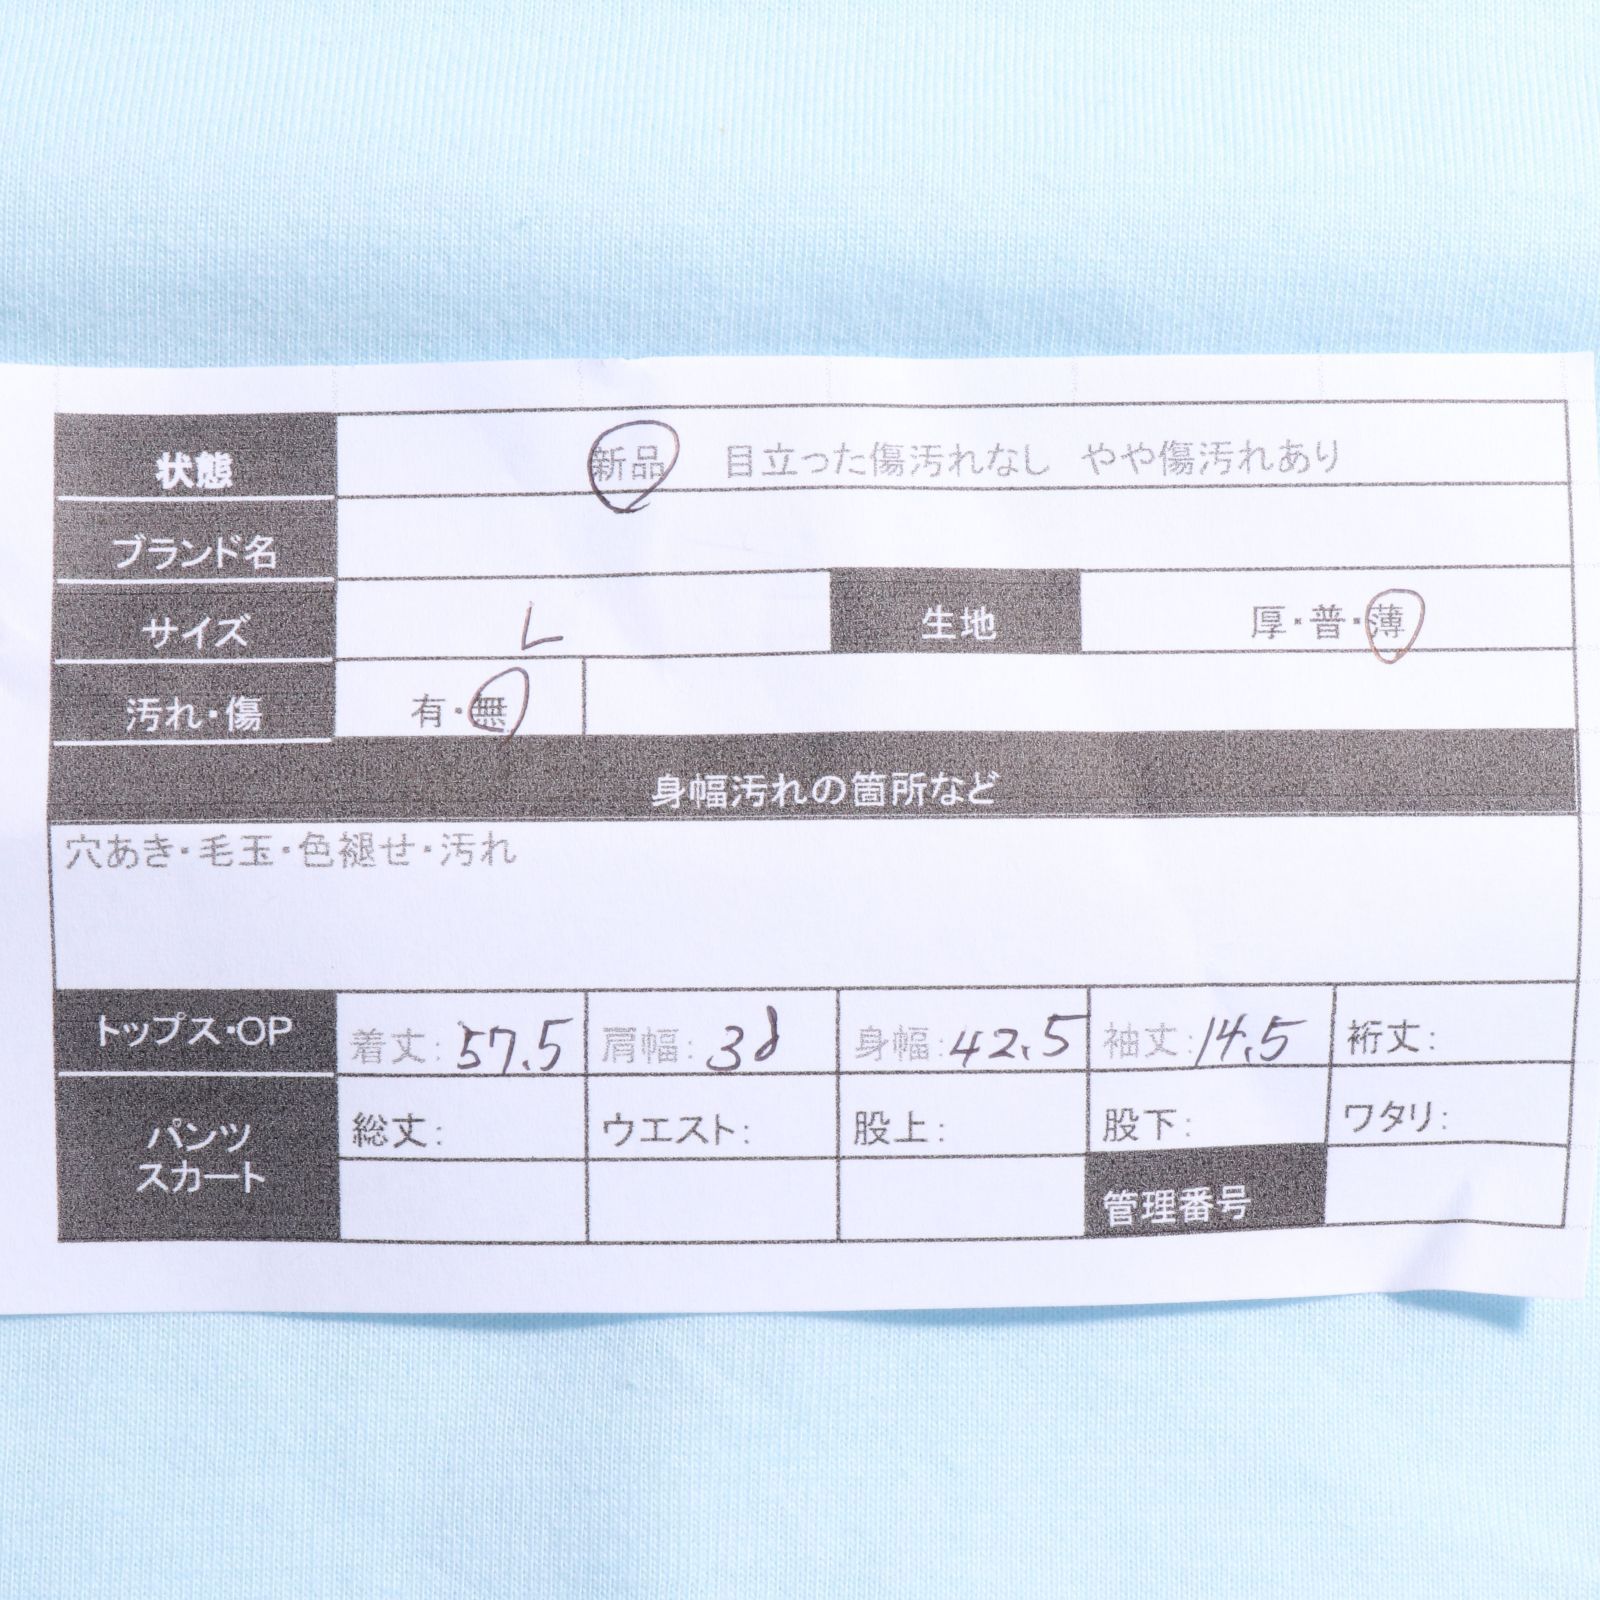 状態 新品 目立った傷汚れなし やや傷汚れあり
ブランド名
サイズ L 生地 厚・普・薄
汚れ・傷 有・無
身幅汚れの箇所など
穴あき・毛玉・色褪せ・汚れ
トップス・OP 着丈: 57.5 肩幅: 38 身幅: 42.5 袖丈: 14.5 裄丈:
パンツ 総丈: ウエスト: 股上: 股下: ワタリ:
スカート
管理番号